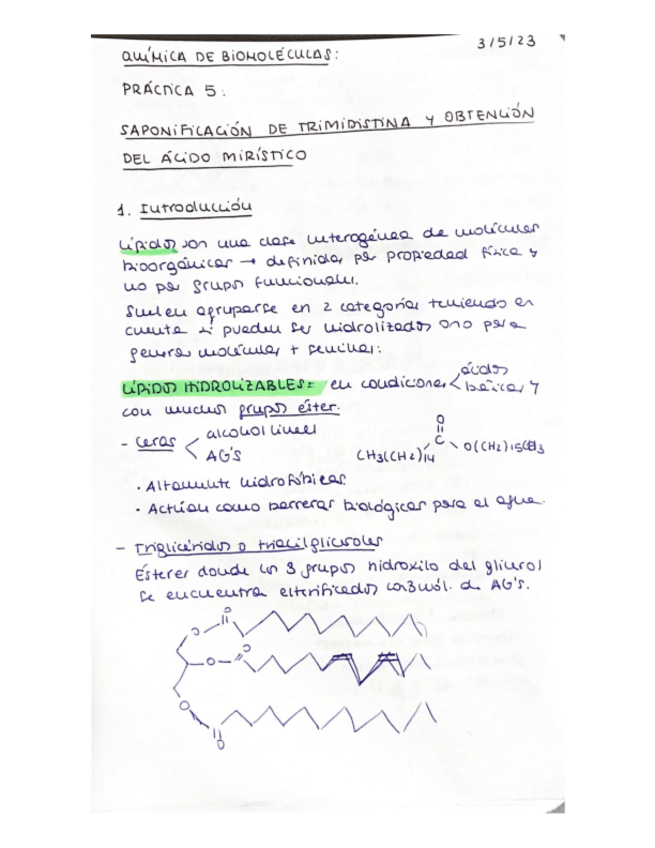 3/5/23
QUÍMICA DE BIOMOLÉCULAS:
PRÁCTICA 5:
SAPONIFICACIÓN DE TRIMIDISTINA Y OBTENCIÓN
DEL ÁCIDO MIRÍSTICO
1. Introducción
Lípidos son una clase heterogénea de moléculas
bioorgánicas → definidas por propiedad física y
no por grupos funcionales.
Suelen agruparse en 2 categorías teniendo en
cuenta si pueden ser hidrolizados o no para
generar moléculas + sencillas:
LÍPIDOS HIDROLIZABLES = en condiciones < ácidas
básicas y
con muchos grupos éster.
- Ceras < alcohol lineal
AG'S
O
C
CH3(CH2)14 O(CH2)15CH3
· Altamente hidrofóbicas
· Actúan como barreras biológicas para el agua.
- Triglicéridos o triacilgliceroles
Ésteres donde los 3 grupos hidroxilo del glicerol
se encuentran esterificados con 3 mól. de AG's.
O
O
O
O
O
O